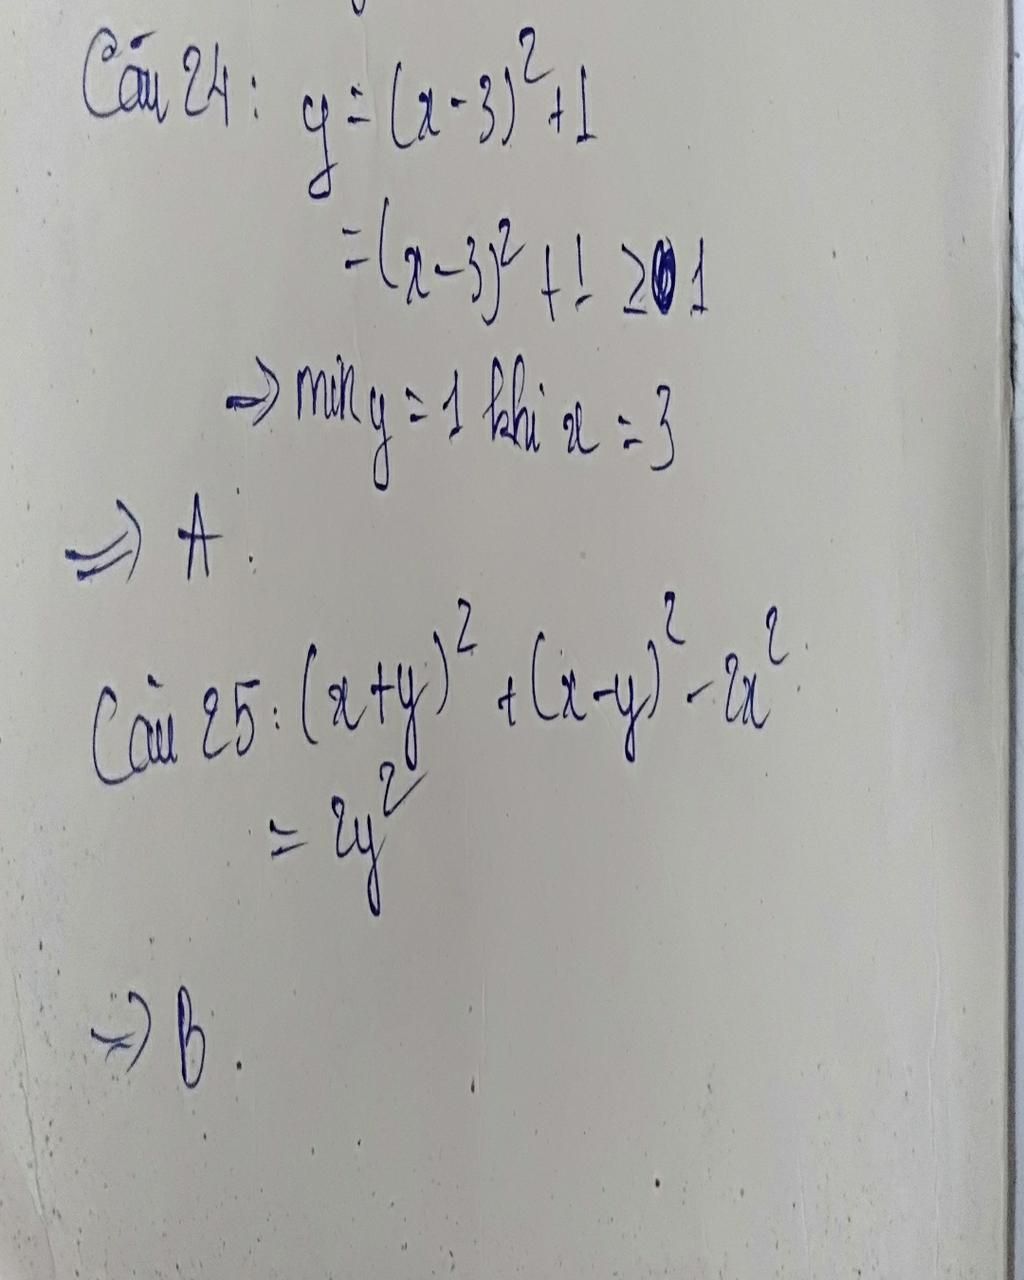 Câu 24: y = (x - 3)² + 1
= (x - 3)² + 1 ≥ 1
=> min y = 1 khi x = 3
=> A.
Câu 25: (x+y)² + (x-y)² - 2x²
= 2y²
=> B.